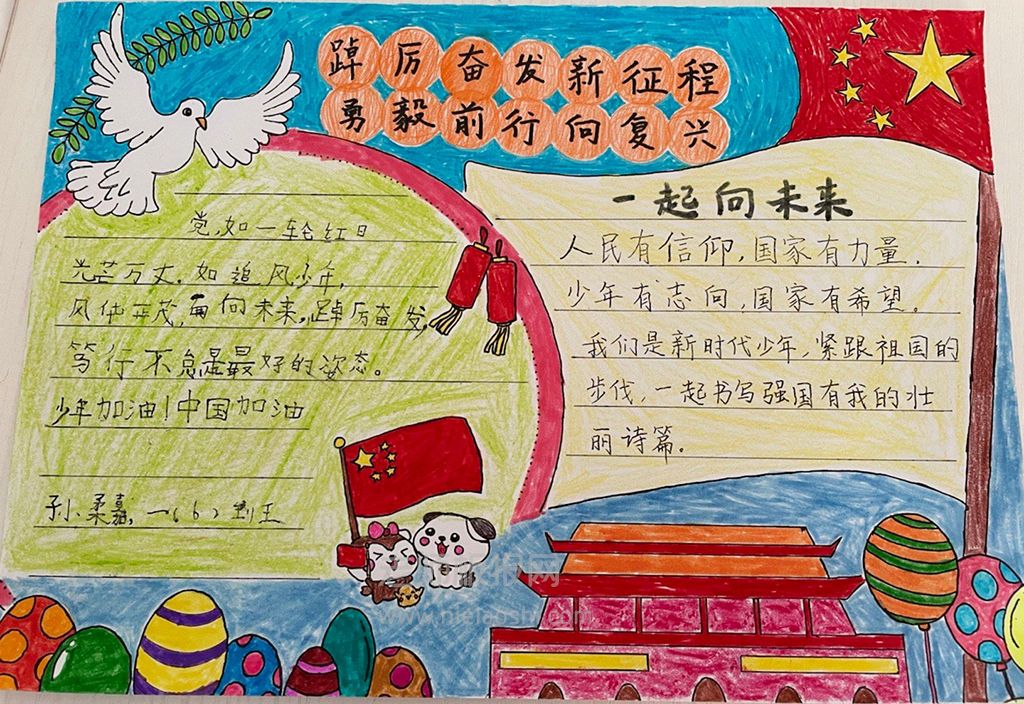 踔厉奋发新征程
勇毅前行向复兴
党,如一轮红日
光芒万丈.如追风少年,
风华正茂,面向未来,踔厉奋发,
笃行不怠是最好的姿态。
少年加油!中国加油
孙柔嘉,一(6)
一起向未来
人民有信仰,国家有力量.
少年有志向,国家有希望。
我们是新时代少年,紧跟祖国的
步伐,一起书写强国有我的壮
丽诗篇。